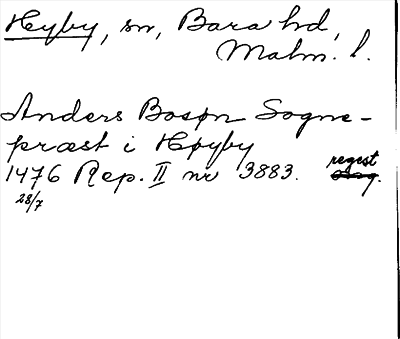 Hyby, sn, Bara hd,
Malm. l.
Anders Bosøn Sogne-
præst i Høyby
1476 Rep. II nr 3883. regest
28/7